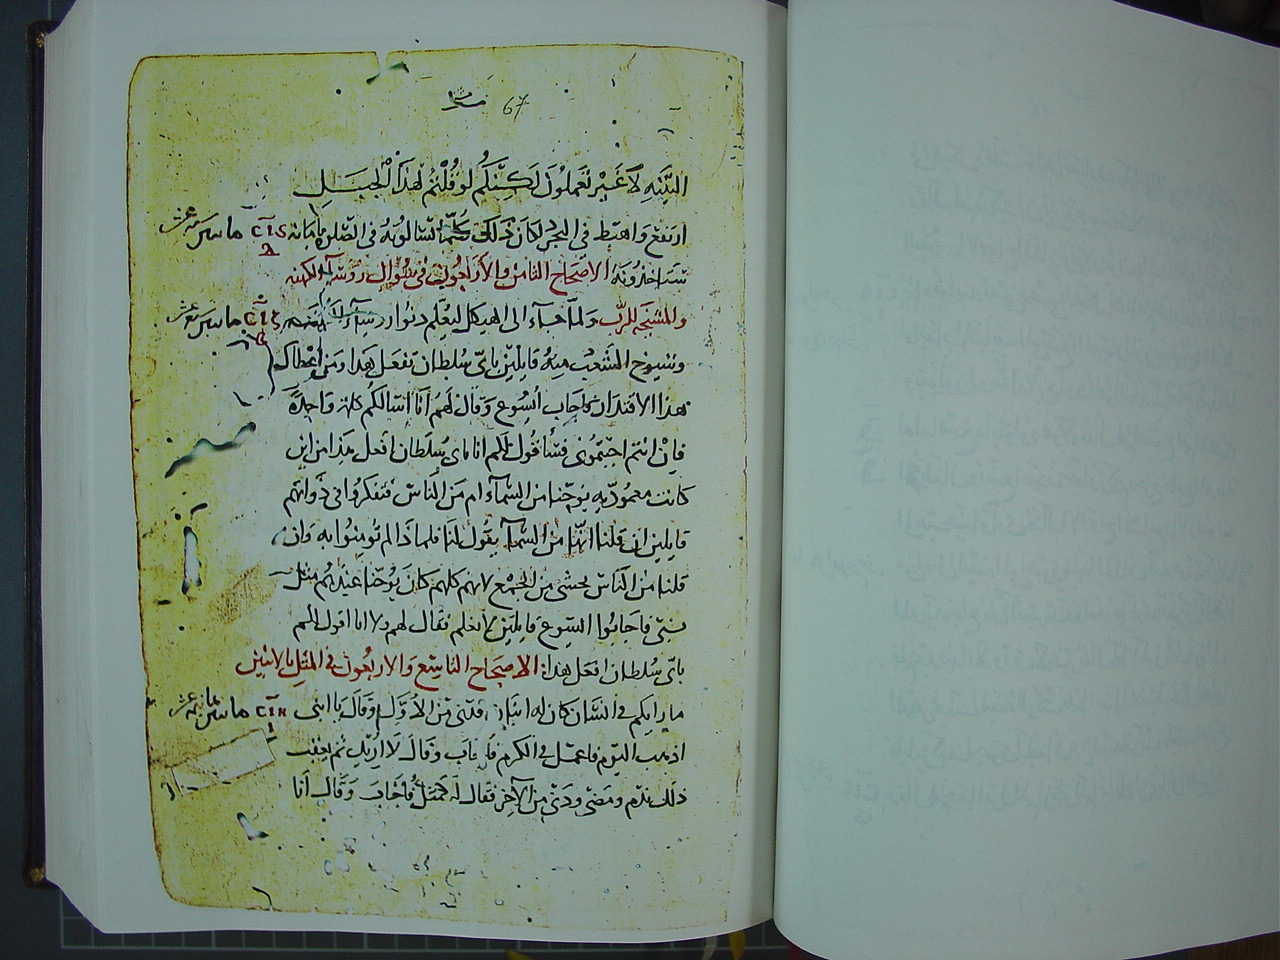 67
التينه لا غير تعملون لكنكم لو قلتم لهذا الجبل
ارتفع واهبط في البحر لكان ذلك كلما تسالونه في الصلوة بامانة
ستاخذونه الاصحاح الثامن والاربعون في سؤال روسآ الكهنه
والمشيخه للرب ولما جآء الى الهيكل ليعلم دنوا روسآء الكهنه
وشيوخ الشعب منه قايلين باي سلطان تفعل هذا ومن اعطاك
هذا الاقتدار فاجاب ايسوع وقال لهم انا اسالكم كلمة واحدة
فان انتم اجبتموني فسأقول لكم انا باي سلطان افعل هذا من اين
كانت معموديه يوحنا من السمآء ام من الناس فتفكروا في ذواتهم
قايلين ان قلنا انها من السمآ يقول لنا فلماذا لم تومنوا به وان
قلنا من الناس نخشى من الجمع لانهم كلهم كان يوحنا عندهم مثل
نبي فاجابوا ايسوع قايلين لا نعلم فقال لهم ولا انا اقول لكم
باي سلطان افعل هذا الاصحاح التاسع والاربعون في المثل بالابنين
ما رايكم في انسان كان له ابنان فدنى من الاول وقال يا ابنى
اذهب اليوم فاعمل في الكرم فاجاب وقال لا اريد ثم بعقب
ذلك ندم ومضى ودنى من الآخر فقال له كمثل فاجاب وقال انا